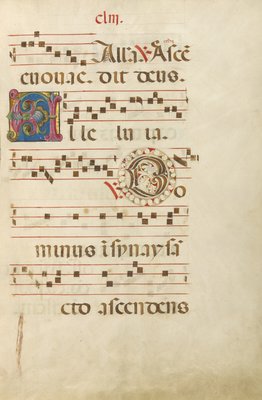 clııj.
Alla. ℣. Ascē
ēuouae. dit deus.
Alleluia.
℣. Do
minus i synay sā
cto ascendens